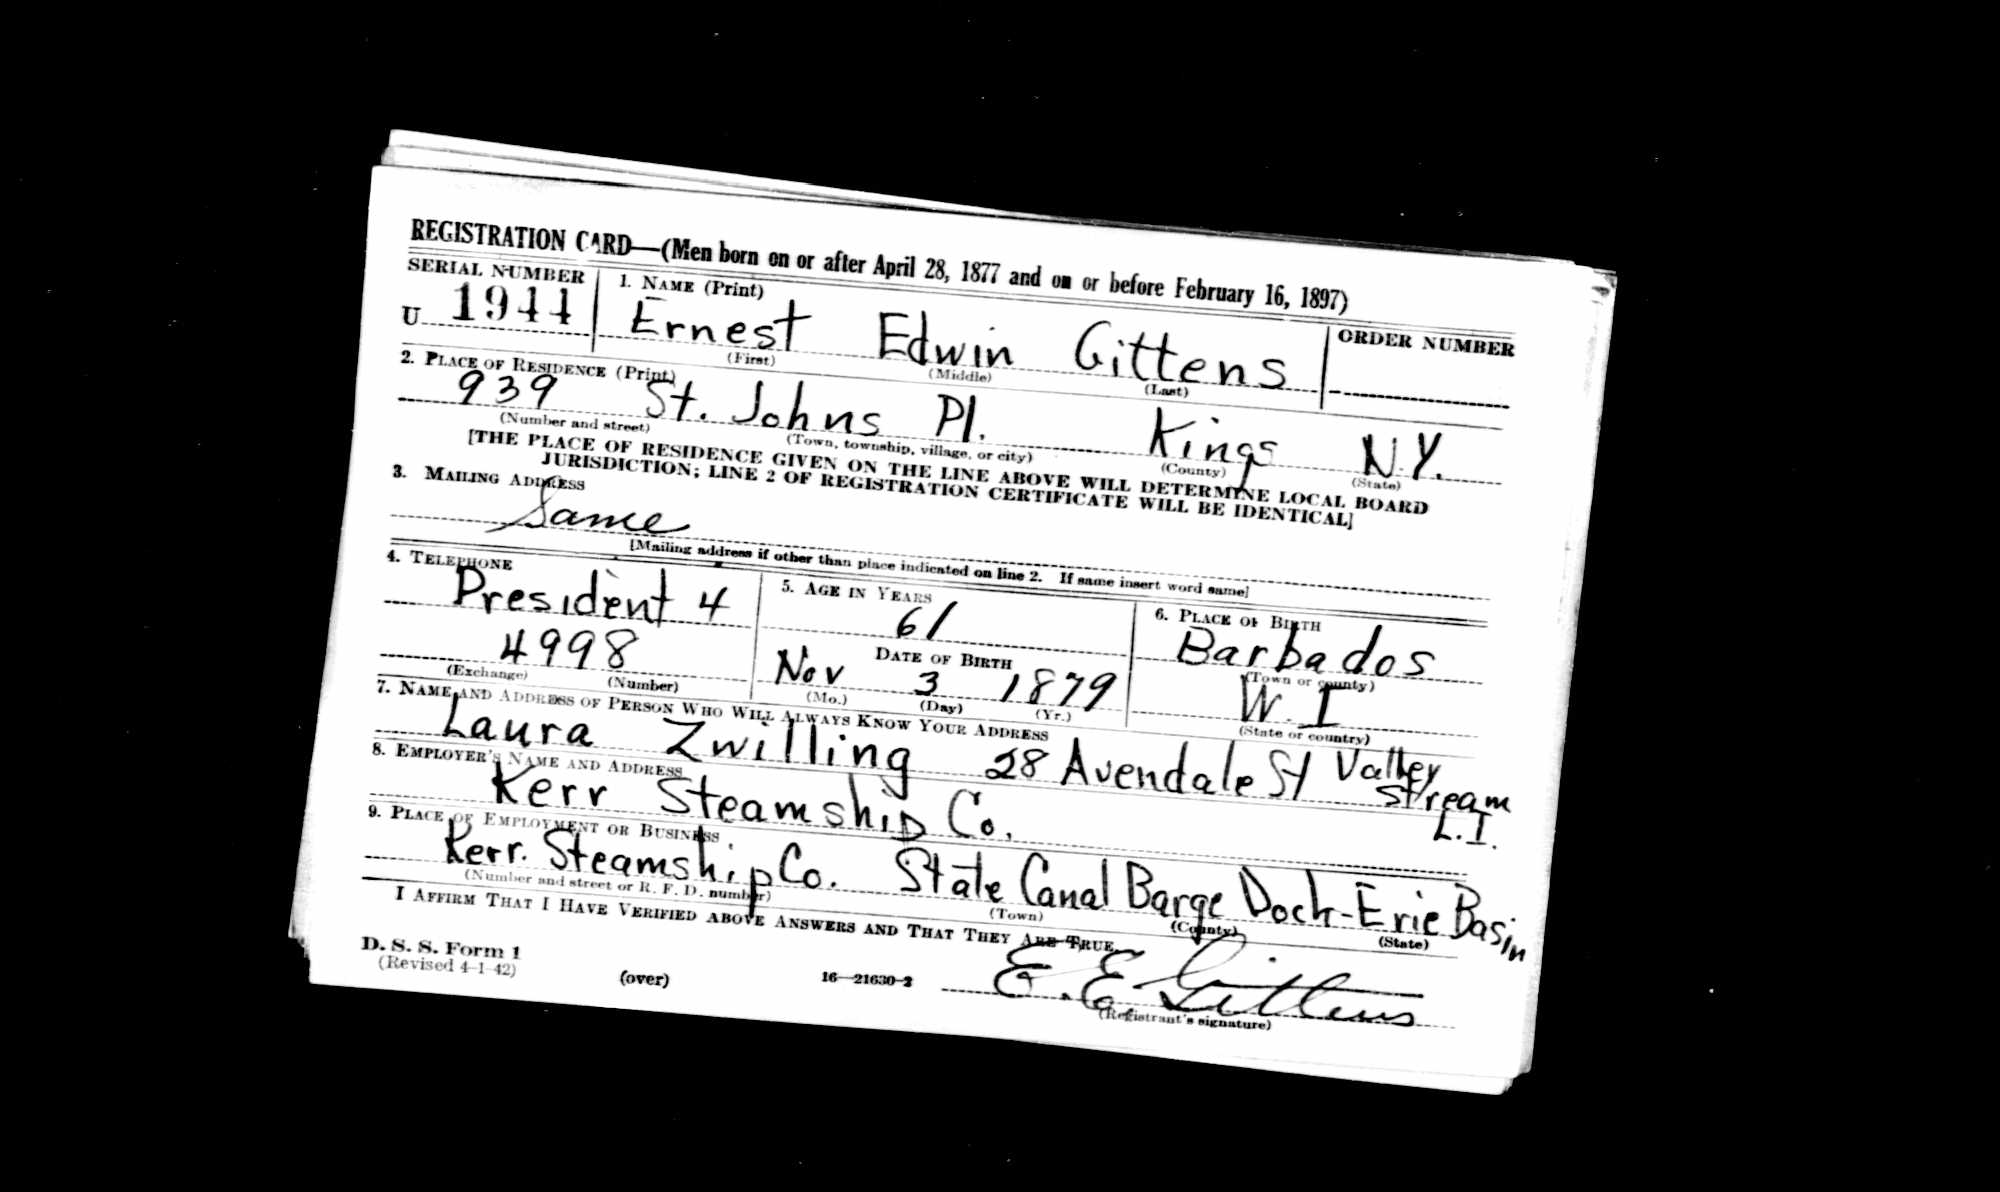 REGISTRATION CARD—(Men born on or after April 28, 1877 and on or before February 16, 1897)
SERIAL NUMBER
1. NAME (Print)
ORDER NUMBER
U 1944
Ernest Edwin Gittens
(First) (Middle) (Last)
2. PLACE OF RESIDENCE (Print)
939 St. Johns Pl. Kings N.Y.
(Number and street) (Town, township, village, or city) (County) (State)
[THE PLACE OF RESIDENCE GIVEN ON THE LINE ABOVE WILL DETERMINE LOCAL BOARD
JURISDICTION; LINE 2 OF REGISTRATION CERTIFICATE WILL BE IDENTICAL]
3. MAILING ADDRESS
Same
[Mailing address if other than place indicated on line 2. If same insert word same]
4. TELEPHONE
President 4
4998
(Exchange) (Number)
5. AGE IN YEARS
61
DATE OF BIRTH
Nov 3 1879
(Mo.) (Day) (Yr.)
6. PLACE OF BIRTH
Barbados
(Town or county)
W. I
(State or country)
7. NAME AND ADDRESS OF PERSON WHO WILL ALWAYS KNOW YOUR ADDRESS
Laura Zwilling 28 Avendale St Valley
Stream
L.I.
8. EMPLOYER'S NAME AND ADDRESS
Kerr Steamship Co.
9. PLACE OF EMPLOYMENT OR BUSINESS
Kerr. Steamship Co. State Canal Barge Dock-Erie Basin
(Number and street or R. F. D. number) (Town) (County) (State)
I AFFIRM THAT I HAVE VERIFIED ABOVE ANSWERS AND THAT THEY ARE TRUE.
D. S. S. Form 1
(Revised 4-1-42)
(over)
16—21630-2
E. E. Gittens
(Registrant's signature)